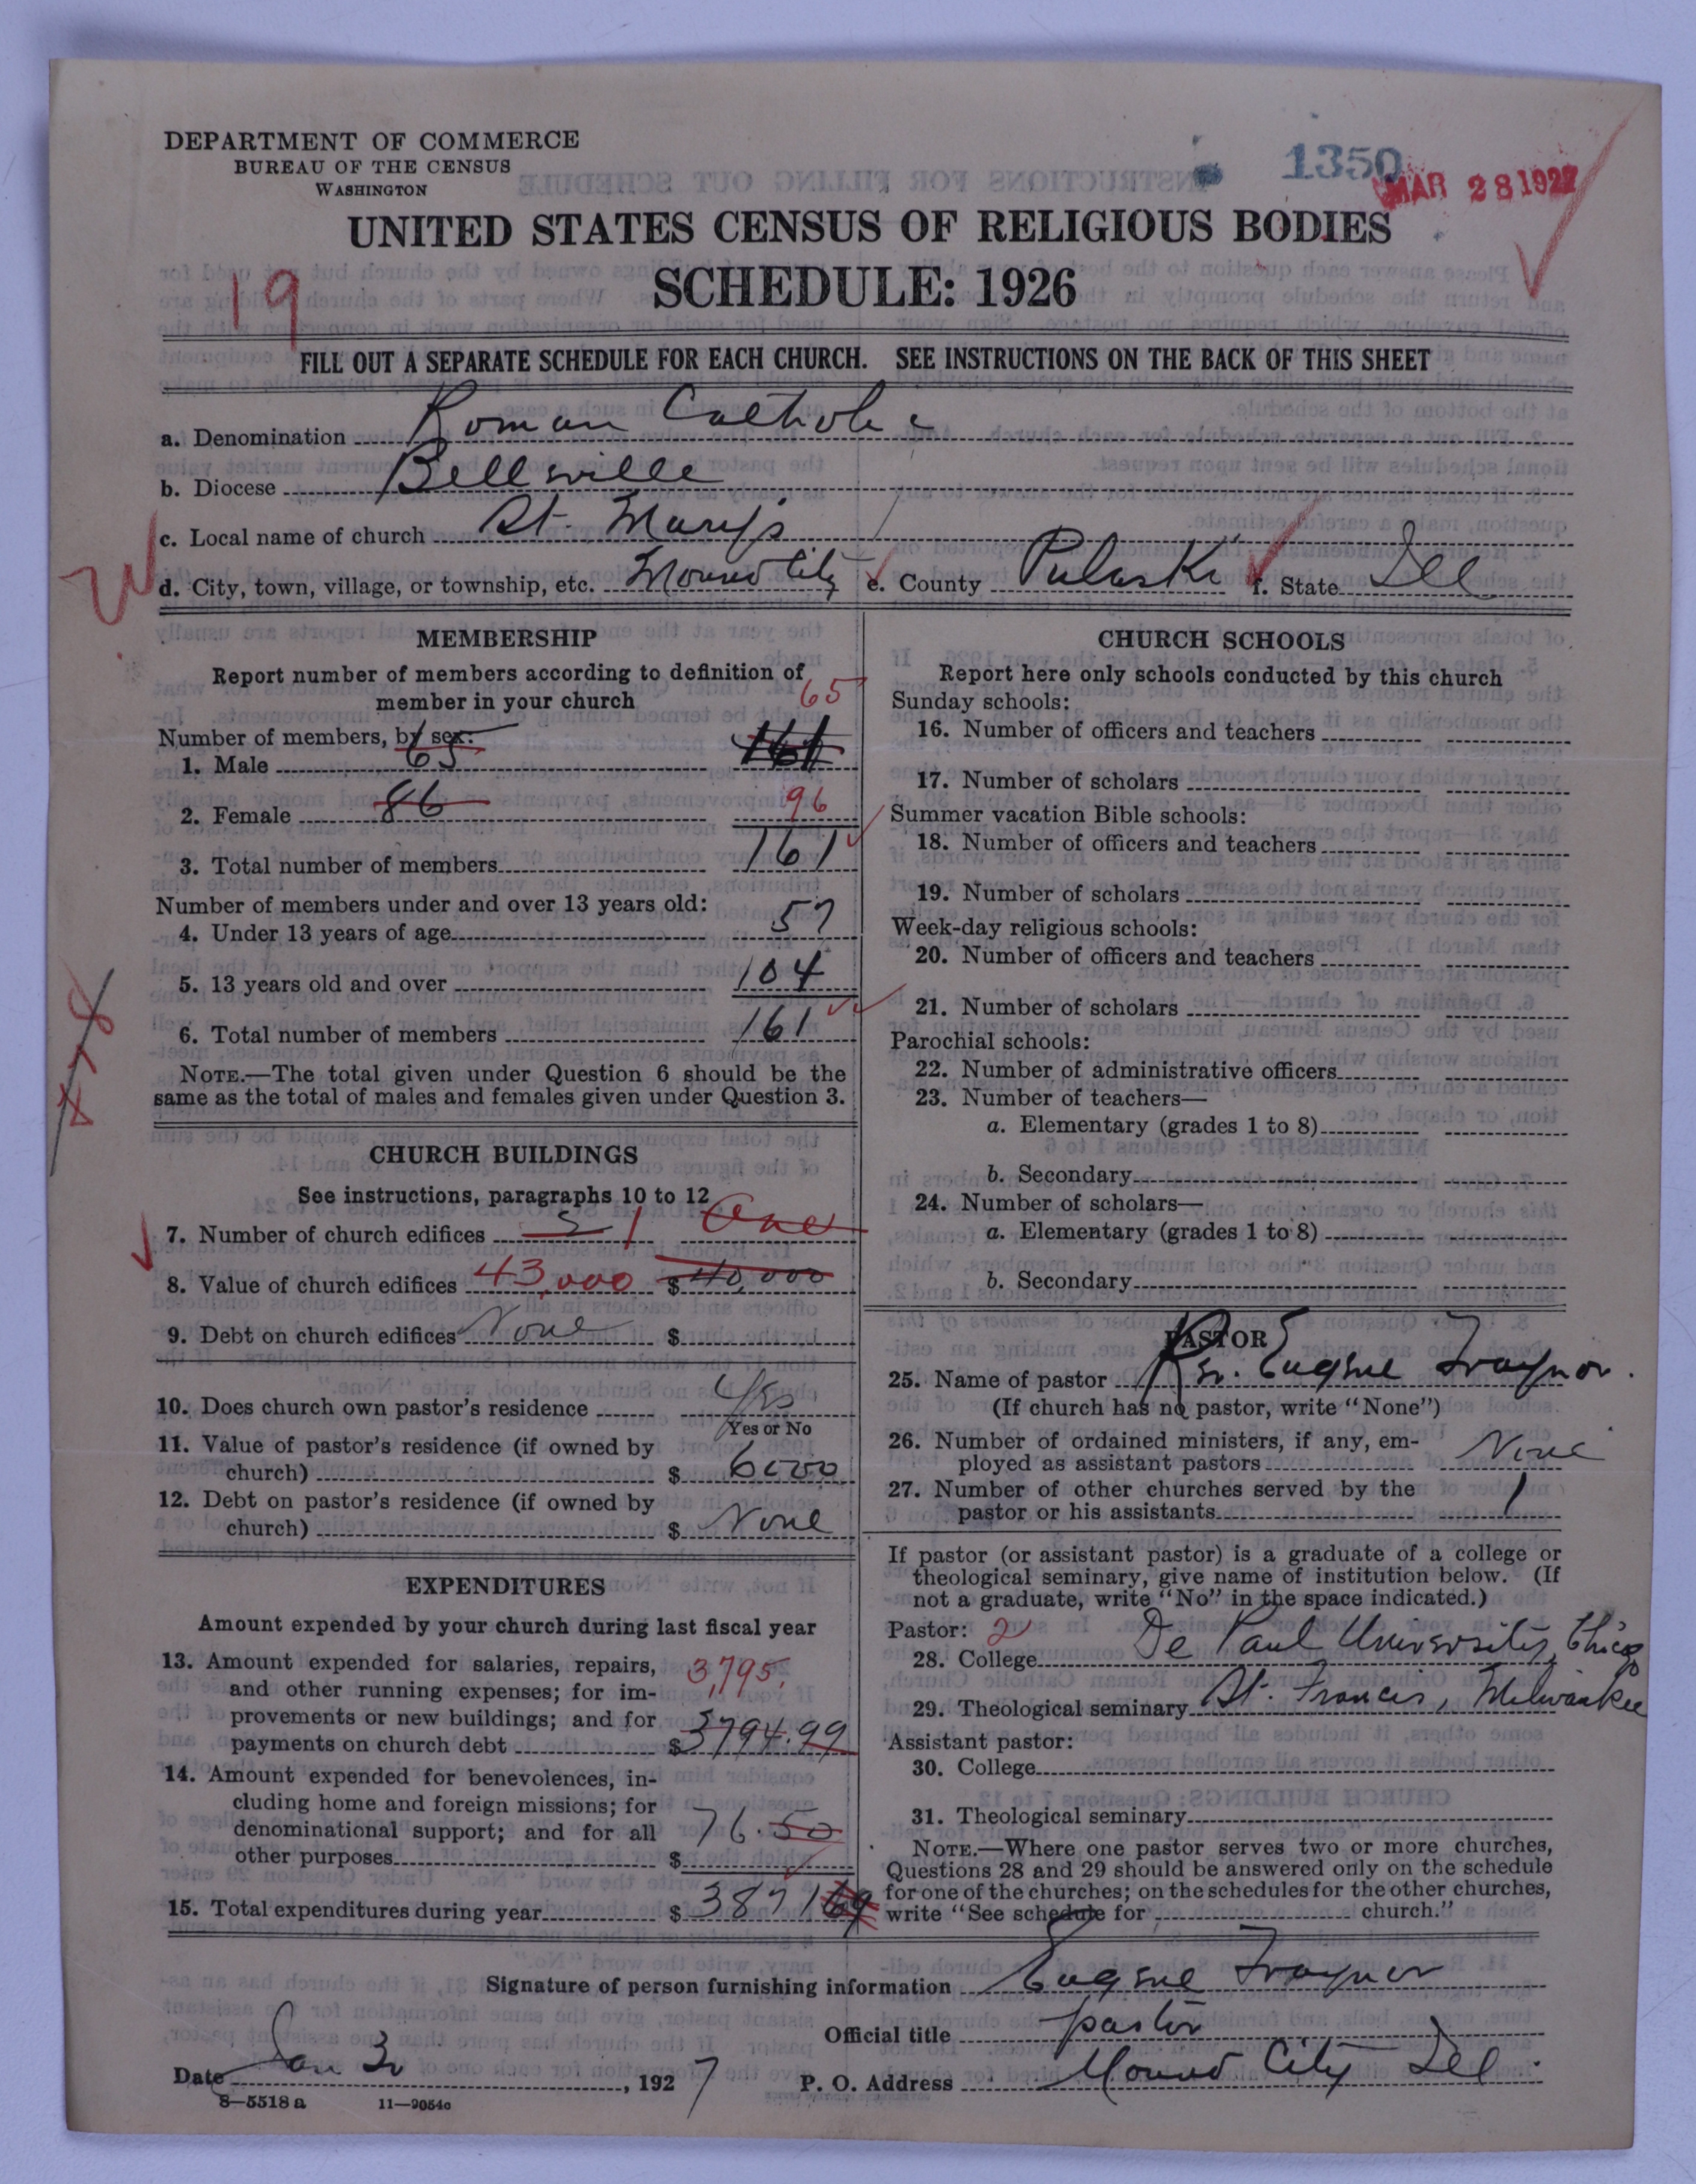 DEPARTMENT OF COMMERCE
BUREAU OF THE CENSUS
WASHINGTON
1350
MAR 28 1927
UNITED STATES CENSUS OF RELIGIOUS BODIES
SCHEDULE: 1926
19
FILL OUT A SEPARATE SCHEDULE FOR EACH CHURCH. SEE INSTRUCTIONS ON THE BACK OF THIS SHEET
a. Denomination Roman Catholic
b. Diocese Bellsville
c. Local name of church St. Mary's
d. City, town, village, or township, etc. Mound City e. County Pulaski f. State Ill
MEMBERSHIP
Report number of members according to definition of
member in your church
65
Number of members, by sex:
1. Male 65 161
2. Female 86 96
3. Total number of members 161
Number of members under and over 13 years old:
4. Under 13 years of age 57
5. 13 years old and over 104
6. Total number of members 161
NOTE.—The total given under Question 6 should be the
same as the total of males and females given under Question 3.
CHURCH BUILDINGS
See instructions, paragraphs 10 to 12
7. Number of church edifices 2 1 One
8. Value of church edifices 43,000 $ 40,000
9. Debt on church edifices None $
10. Does church own pastor's residence Yes
Yes or No
11. Value of pastor's residence (if owned by
church) $ 6000
12. Debt on pastor's residence (if owned by
church) $ None
EXPENDITURES
Amount expended by your church during last fiscal year
13. Amount expended for salaries, repairs, 3,795.
and other running expenses; for im-
provements or new buildings; and for
payments on church debt $ 3794.99
14. Amount expended for benevolences, in-
cluding home and foreign missions; for
denominational support; and for all 76.50
other purposes $
15. Total expenditures during year $ 3871
CHURCH SCHOOLS
Report here only schools conducted by this church
Sunday schools:
16. Number of officers and teachers
17. Number of scholars
Summer vacation Bible schools:
18. Number of officers and teachers
19. Number of scholars
Week-day religious schools:
20. Number of officers and teachers
21. Number of scholars
Parochial schools:
22. Number of administrative officers
23. Number of teachers—
a. Elementary (grades 1 to 8)
b. Secondary
24. Number of scholars—
a. Elementary (grades 1 to 8)
b. Secondary
PASTOR
25. Name of pastor Rev. Eugene Traynor.
(If church has no pastor, write "None")
26. Number of ordained ministers, if any, em-
ployed as assistant pastors None
27. Number of other churches served by the
pastor or his assistants 1
If pastor (or assistant pastor) is a graduate of a college or
theological seminary, give name of institution below. (If
not a graduate, write "No" in the space indicated.)
Pastor: 2
28. College De Paul University, Chicago
29. Theological seminary St. Francis, Milwaukee
Assistant pastor:
30. College
31. Theological seminary
NOTE.—Where one pastor serves two or more churches,
Questions 28 and 29 should be answered only on the schedule
for one of the churches; on the schedules for the other churches,
write "See schedule for church."
Signature of person furnishing information Eugene Traynor
Official title pastor
Date Jan 3, 1927 P. O. Address Mound City Ill.
8—5518 a 11—9054c